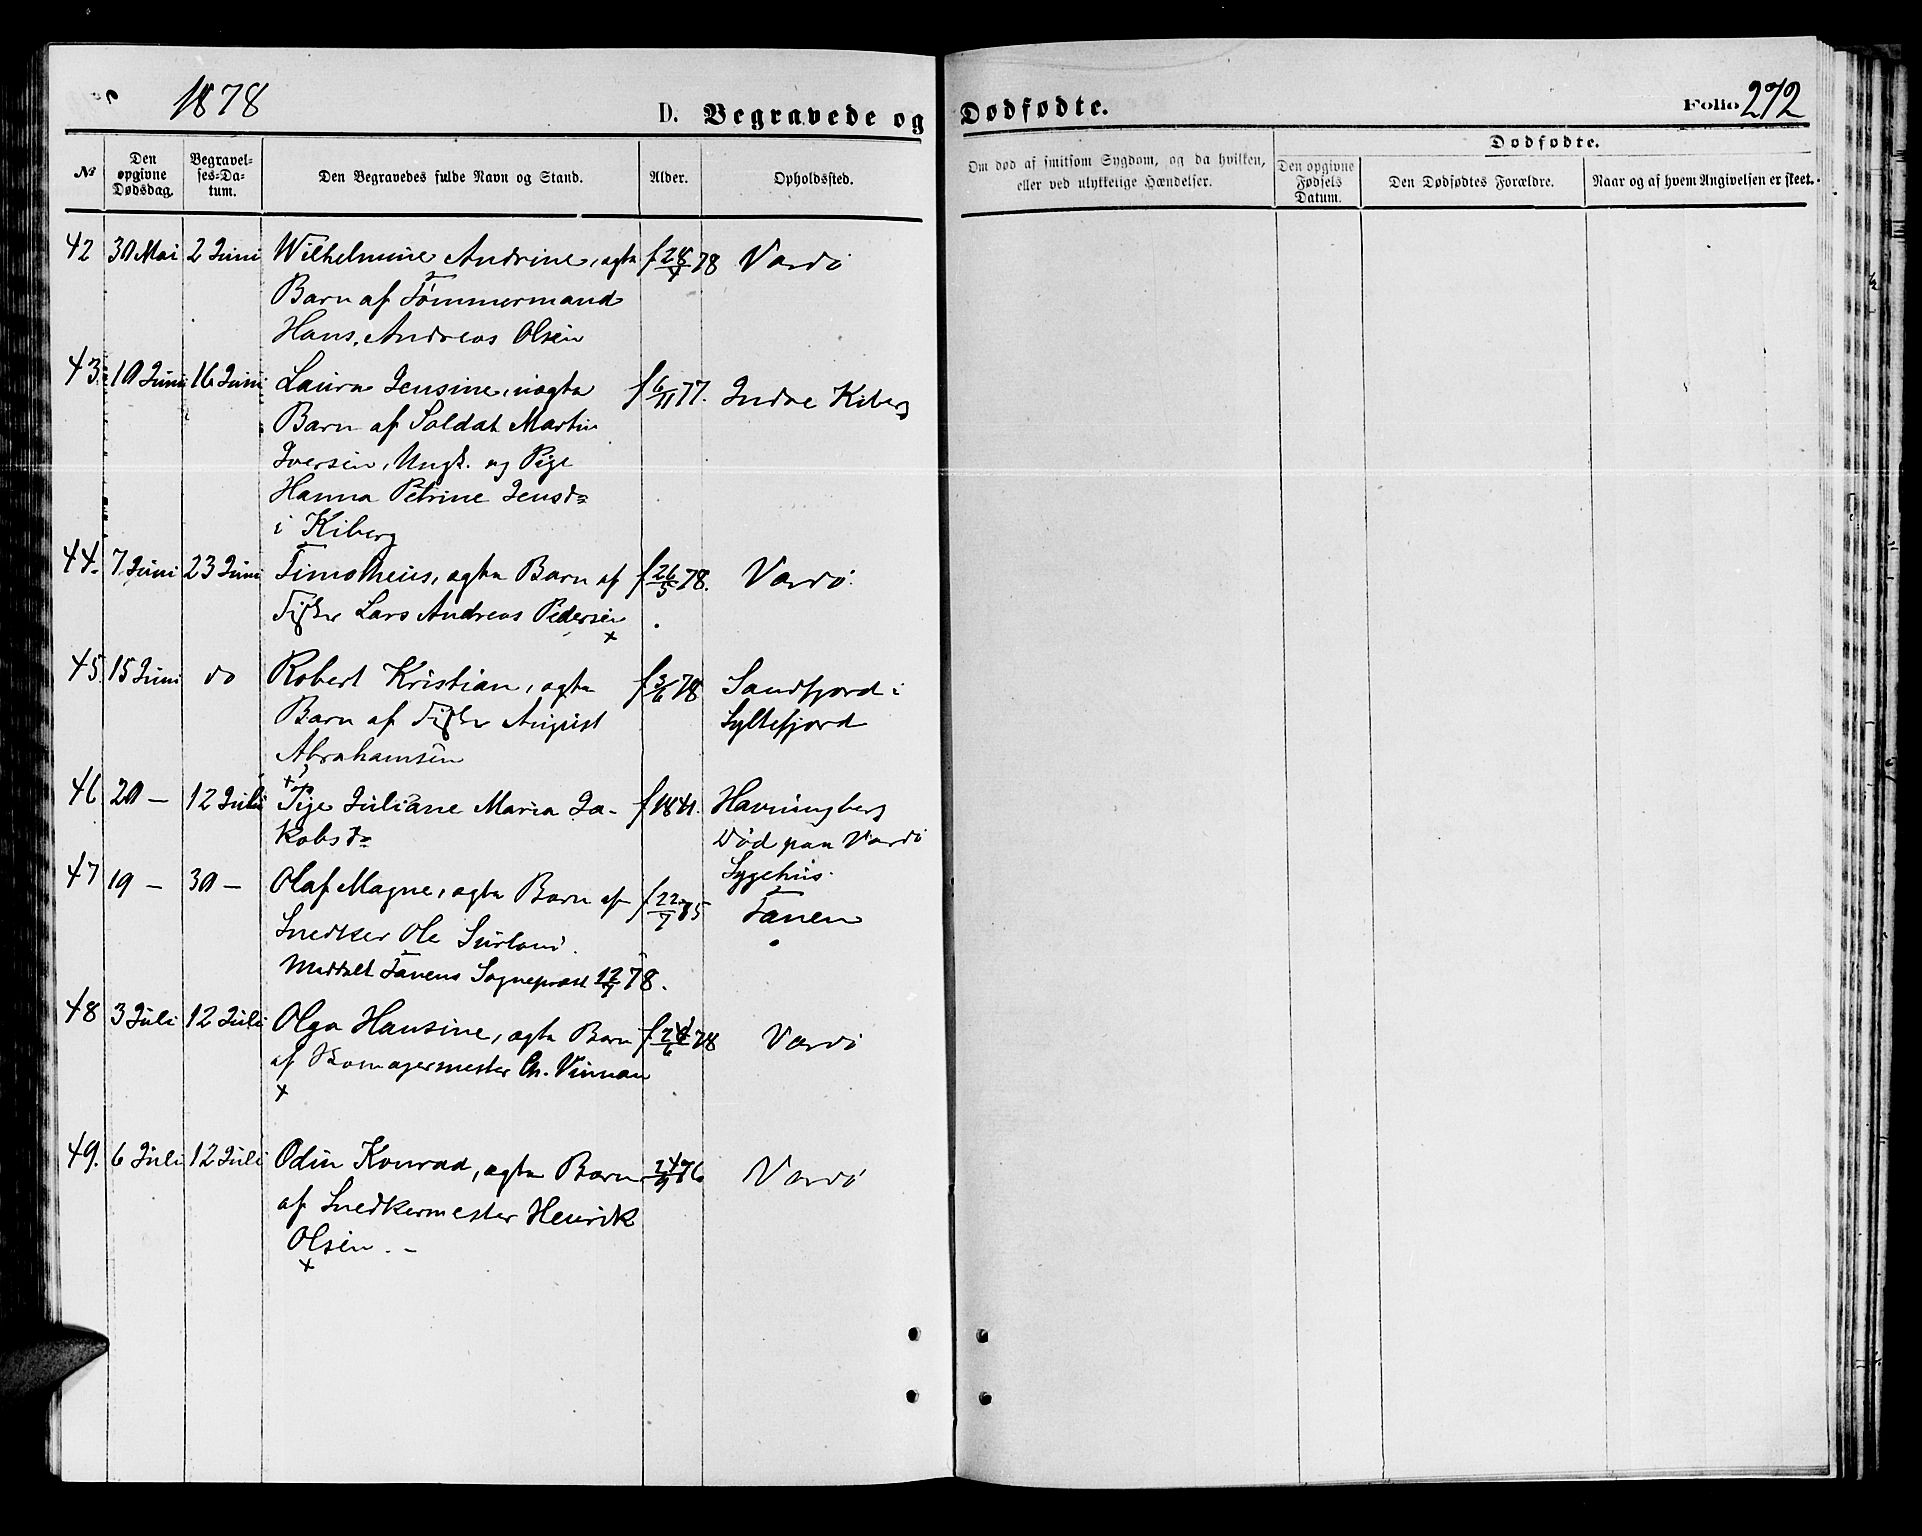 1878
D. Begravede og Dødfødte.
Folio 272
№
Den opgivne Dødsdag.
Begravelses-Datum.
Den Begravedes fulde Navn og Stand.
Alder.
Opholdssted.
Om død af smitsom Sygdom, og da hvilken, eller ved ulykkelige Hændelser.
Dødfødte.
Den opgivne Fødsels Datum.
Den Dødfødtes Forældre.
Naar og af hvem Angivelsen er skeet.
42 30 Mai 2 Juni Wilhelmine Andrine, ægta f 28/4 78 Vardö
Barn af Tømmermand
Hans Andreas Olsen
43. 10 Juni 16 Juni Laura Jensine, uægta f 6/11 77. Indre Kiberg
Barn af Soldat Martin
Iversen, Ungk. og Pige
Hanna Petrine Jensd=
i Kiberg
44. 7 Juni 23 Juni Timotheus, ægta Barn af f 26/5 78. Vardö
Fisker Lars Andreas Pedersen
x
45. 15 Juni do Robert Kristian, ægta f 3/6 78 Sandfjord i
Barn af Fisker August Syltefjord
Abrahamsen
x
46 20 — 12 Juli Pige Juliane Maria Ja- f 1841. Havningberg
kobsd= Död paa Vardö
Sygehus.
47 19 — 30 — Olaf Magne, ægta Barn af f 22/7 75 Tanen
Snedker Ole
Meddelt Tanens Sognepræst 12/7 78.
48 3 Juli 12 Juli Olga Hansine, ægta Barn f 6 78 Vardö
af Skomagermester Ch.
x
49. 6 Juli 12 Juli Odin Konrad, ægta Barn 24/9 76 Vardö
af Snedkermester Henrik
Olsen. —
x